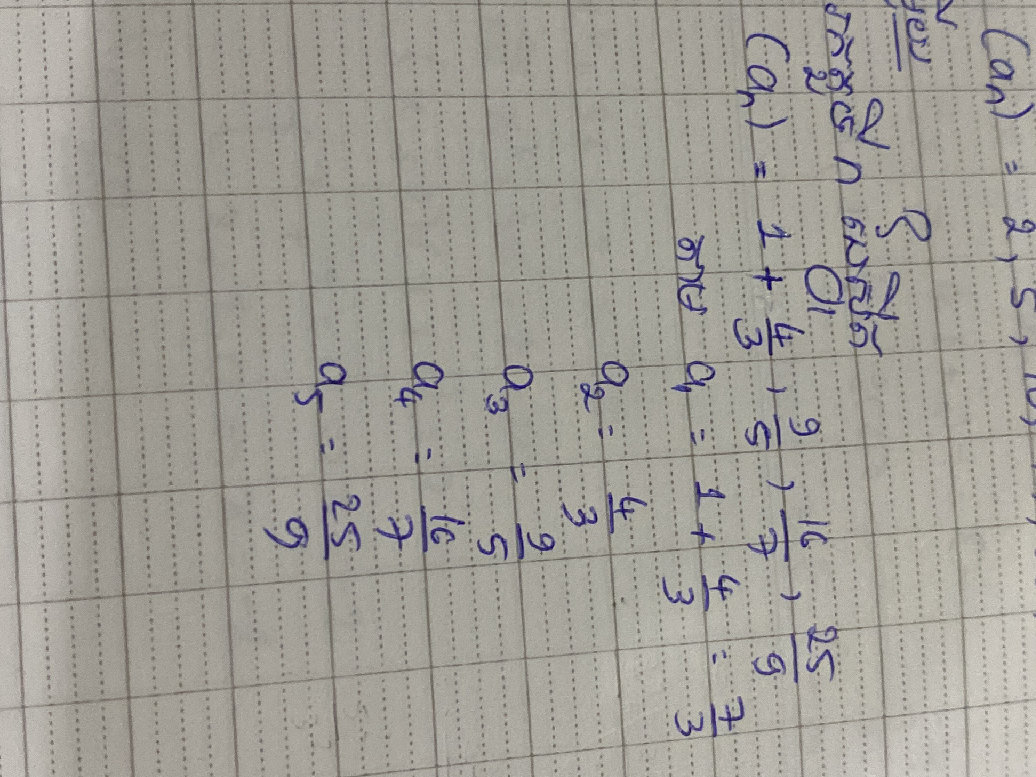 (aₙ) = 2, 5, 10,
(aₙ) = 1 + 4/3, 9/5, 16/7, 25/9
តាម a₁ = 1 + 4/3 = 7/3
a₂ = 4/3
a₃ = 9/5
a₄ = 16/7
a₅ = 25/9